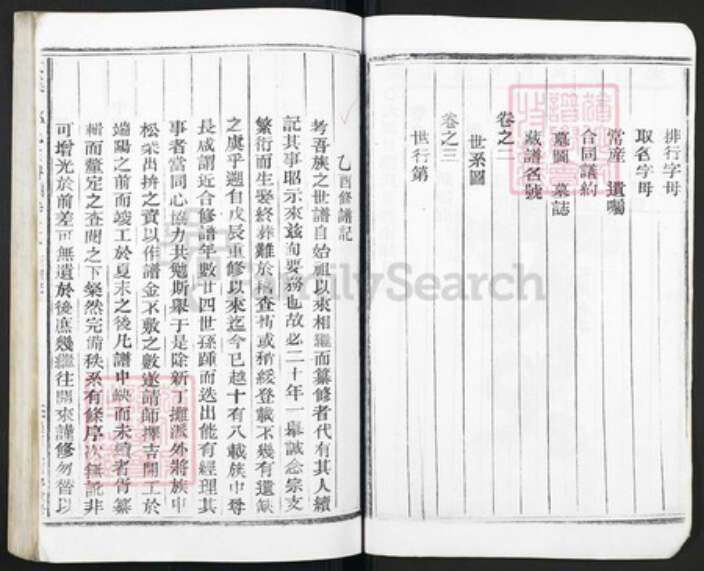 排行字母
取名字母
常産 遺囑
合同議約
墓圖 墓誌
藏譜名號
卷之二
世系圖
卷之三
世行第
乙酉修譜記
考吾族之世譜自始祖以來相繼而纂修者代有其人續
記其事昭示來茲洵要務也故必二十年一舉誠念宗支
繁衍而生娶終葬難於稽查苟或稍緩登載不幾有遺缺
之虞乎溯自戊辰重修以來迄今已越十有八載族中尊
長咸謂近合修譜年數廿四世孫踵而迭出能有經理其
事者當同心協力共勉斯舉于是除新丁攤派外將族中
松梁出拚之資以作譜金不敷之數遂請師擇吉開工於
端陽之前而竣工於夏末之後凡譜中缺而未續者胥纂
輯而釐定之查閱之下粲然完備秩系有條序次無訛非
可增光於前差可無遺於後庶幾繼往開來謹修勿替以
FamilySearch